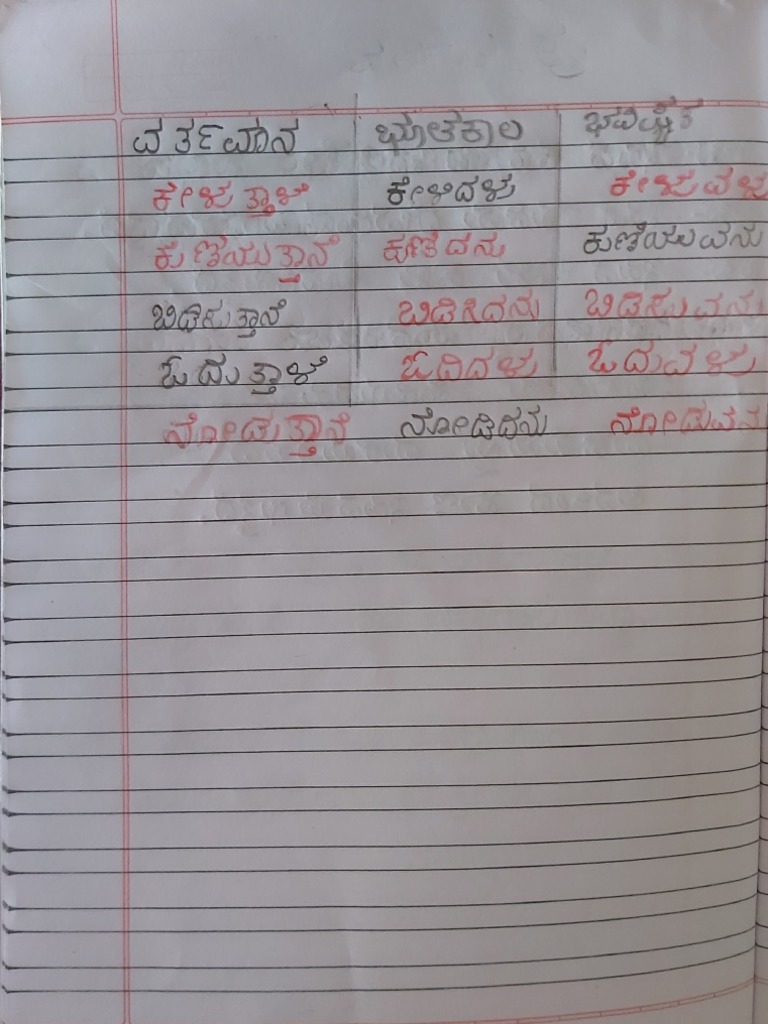 ವರ್ತಮಾನ ಭೂತಕಾಲ ಭವಿಷ್ಯತ
ಕೇಳುತ್ತಾಳೆ ಕೇಳಿದಳು ಕೇಳುವಳು
ಕುಣಿಯುತ್ತಾನೆ ಕುಣಿದನು ಕುಣಿಯುವನು
ಬಿಡಿಸುತ್ತಾನೆ ಬಿಡಿಸಿದನು ಬಿಡಿಸುವನು
ಓದುತ್ತಾಳೆ ಓದಿದಳು ಓದುವಳು
ನೋಡುತ್ತಾನೆ ನೋಡಿದನು ನೋಡುವನು